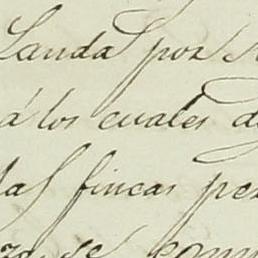 Landa por
á los cuales
las fincas per
se com